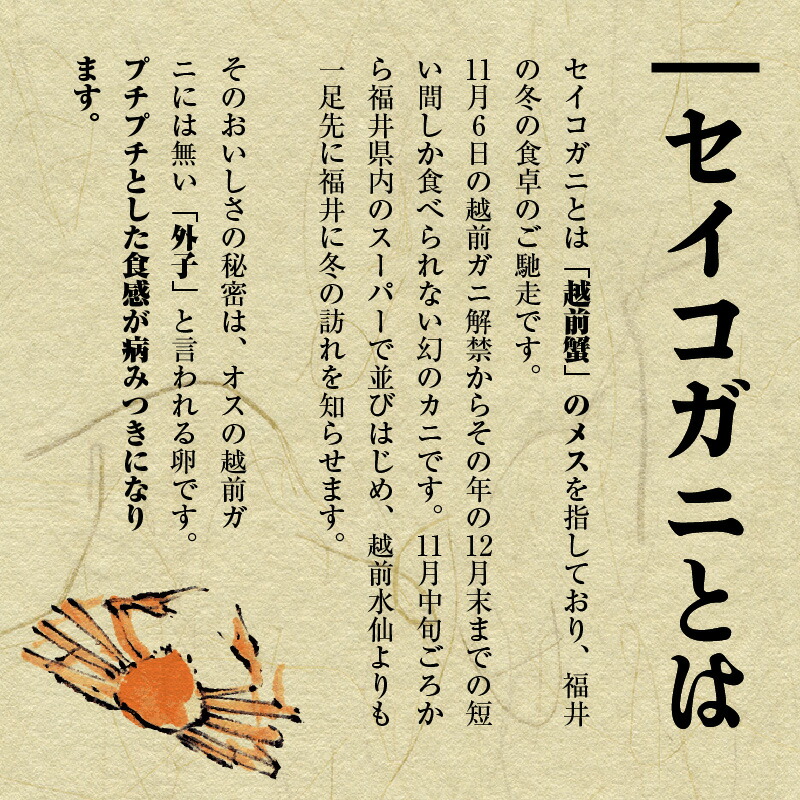 セイコガニとは
セイコガニとは「越前蟹」のメスを指しており、福井
の冬の食卓のご馳走です。
11月6日の越前ガニ解禁からその年の12月末までの短
い間しか食べられない幻のカニです。11月中旬ごろか
ら福井県内のスーパーで並びはじめ、越前水仙よりも
一足先に福井に冬の訪れを知らせます。
そのおいしさの秘密は、オスの越前ガ
ニには無い「外子」と言われる卵です。
プチプチとした食感が病みつきになり
ます。